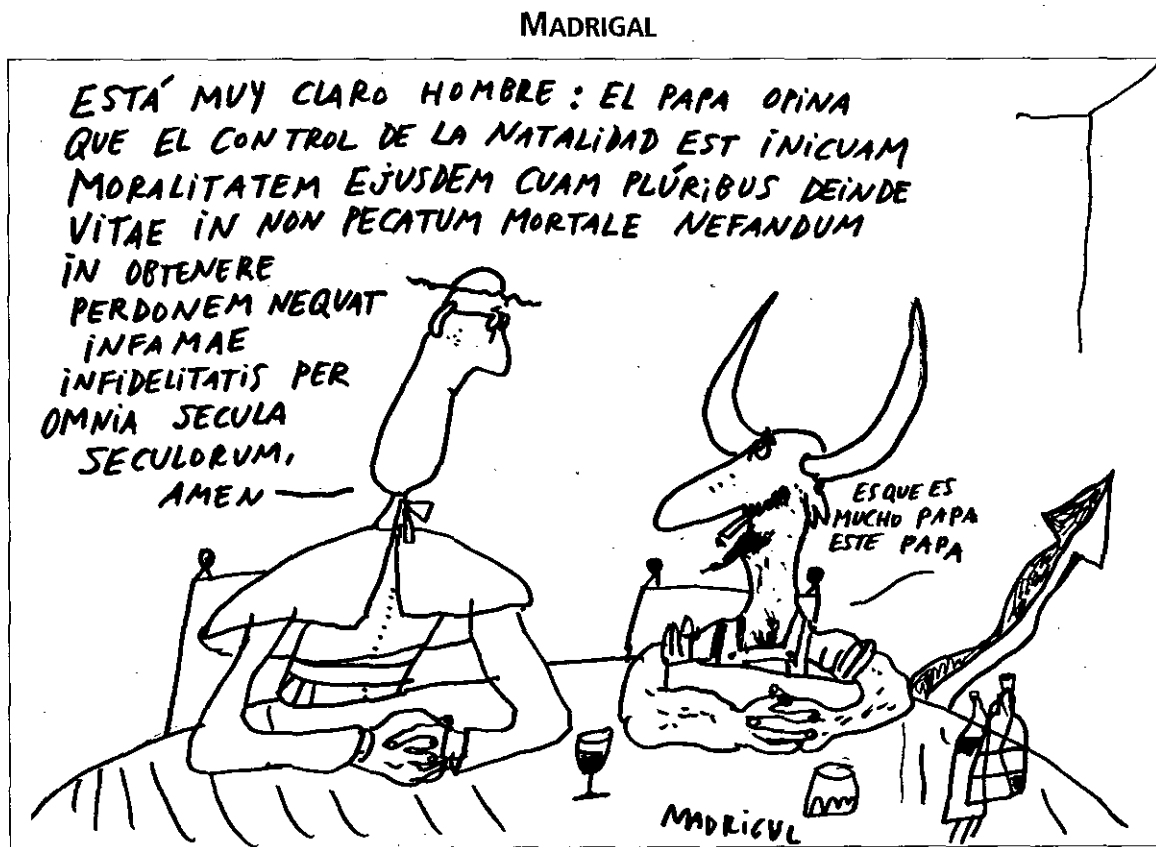 MADRIGAL
ESTÁ MUY CLARO HOMBRE: EL PAPA OPINA
QUE EL CONTROL DE LA NATALIDAD EST INICUAM
MORALITATEM EJUSDEM CUAM PLÚRIBUS DEINDE
VITAE IN NON PECATUM MORTALE NEFANDUM
IN OBTENERE
PERDONEM NEQUAT
INFAMAE
INFIDELITATIS PER
OMNIA SECULA
SECULORUM,
AMEN
ES QUE ES
MUCHO PAPA
ESTE PAPA
MADRIGUL